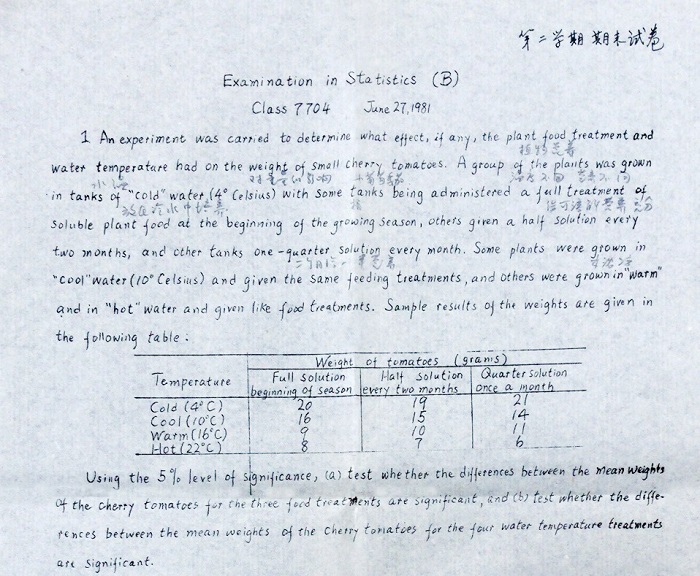 第二学期 期末试卷
Examination in Statistics (B)
Class 7704 June 27, 1981
1 An experiment was carried to determine what effect, if any, the plant food treatment and
植物营养
water temperature had on the weight of small cherry tomatoes. A group of the plants was grown
水
in tanks of "cold" water (4° Celsius) with some tanks being administered a full treatment of
放在冷水中培养
soluble plant food at the beginning of the growing season, others given a half solution every
two months, and other tanks one-quarter solution every month. Some plants were grown in
"cool" water (10° Celsius) and given the same feeding treatments, and others were grown in "warm"
and in "hot" water and given like food treatments. Sample results of the weights are given in
the following table:
Weight of tomatoes (grams)
Temperature Full solution beginning of season Half solution every two months Quarter solution once a month
Cold (4°C) 20 19 21
Cool (10°C) 16 15 14
Warm (16°C) 9 10 11
Hot (22°C) 8 7 6
Using the 5% level of significance, (a) test whether the differences between the mean weights
of the cherry tomatoes for the three food treatments are significant, and (b) test whether the diffe-
rences between the mean weights of the cherry tomatoes for the four water temperature treatments
are significant.